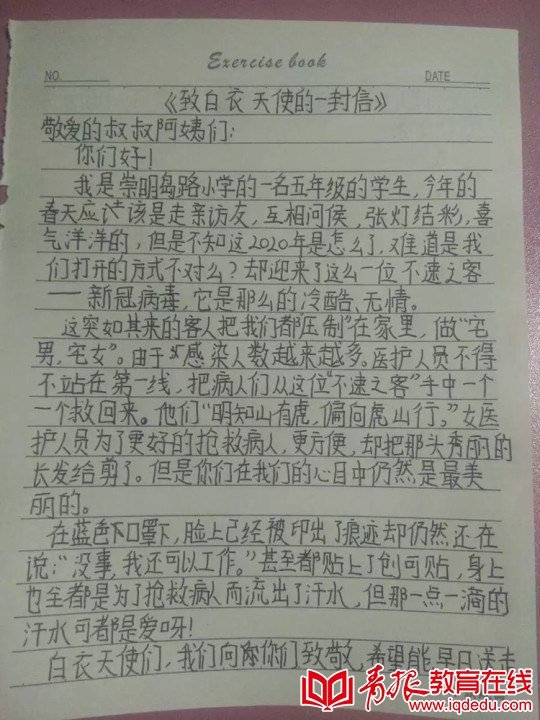 Exercise book
NO.
DATE
《致白衣天使的一封信》
敬爱的叔叔阿姨们:
你们好!
我是崇明岛路小学的一名五年级的学生,今年的
春天应该是走亲访友,互相问侯,张灯结彩,喜
气洋洋的,但是不知这2020年是怎么了,难道是我
们打开的方式不对么?却迎来了这么一位不速之客
——新冠病毒,它是那么的冷酷、无情。
这突如其来的客人把我们都压制在家里,做“宅
男,宅女”。由于感染人数越来越多。医护人员不得
不站在第一线,把病人们从这位“不速之客”手中一个
一个救回来。他们“明知山有虎,偏向虎山行。”女医
护人员为了更好的抢救病人,更方便,却把那头秀丽的
长发给剪了。但是你们在我们的心目中仍然是最美
丽的。
在蓝色下口罩下,脸上已经被印出了痕迹却仍然还在
说:“没事,我还可以工作。”甚至都贴上了创可贴,身上
也全都是为了抢救病人而流出了汗水,但那一点一滴的
汗水可都是爱呀!
白衣天使们,我们向你们致敬,希望能早日送走
青报教育在线
www.iqdedu.com